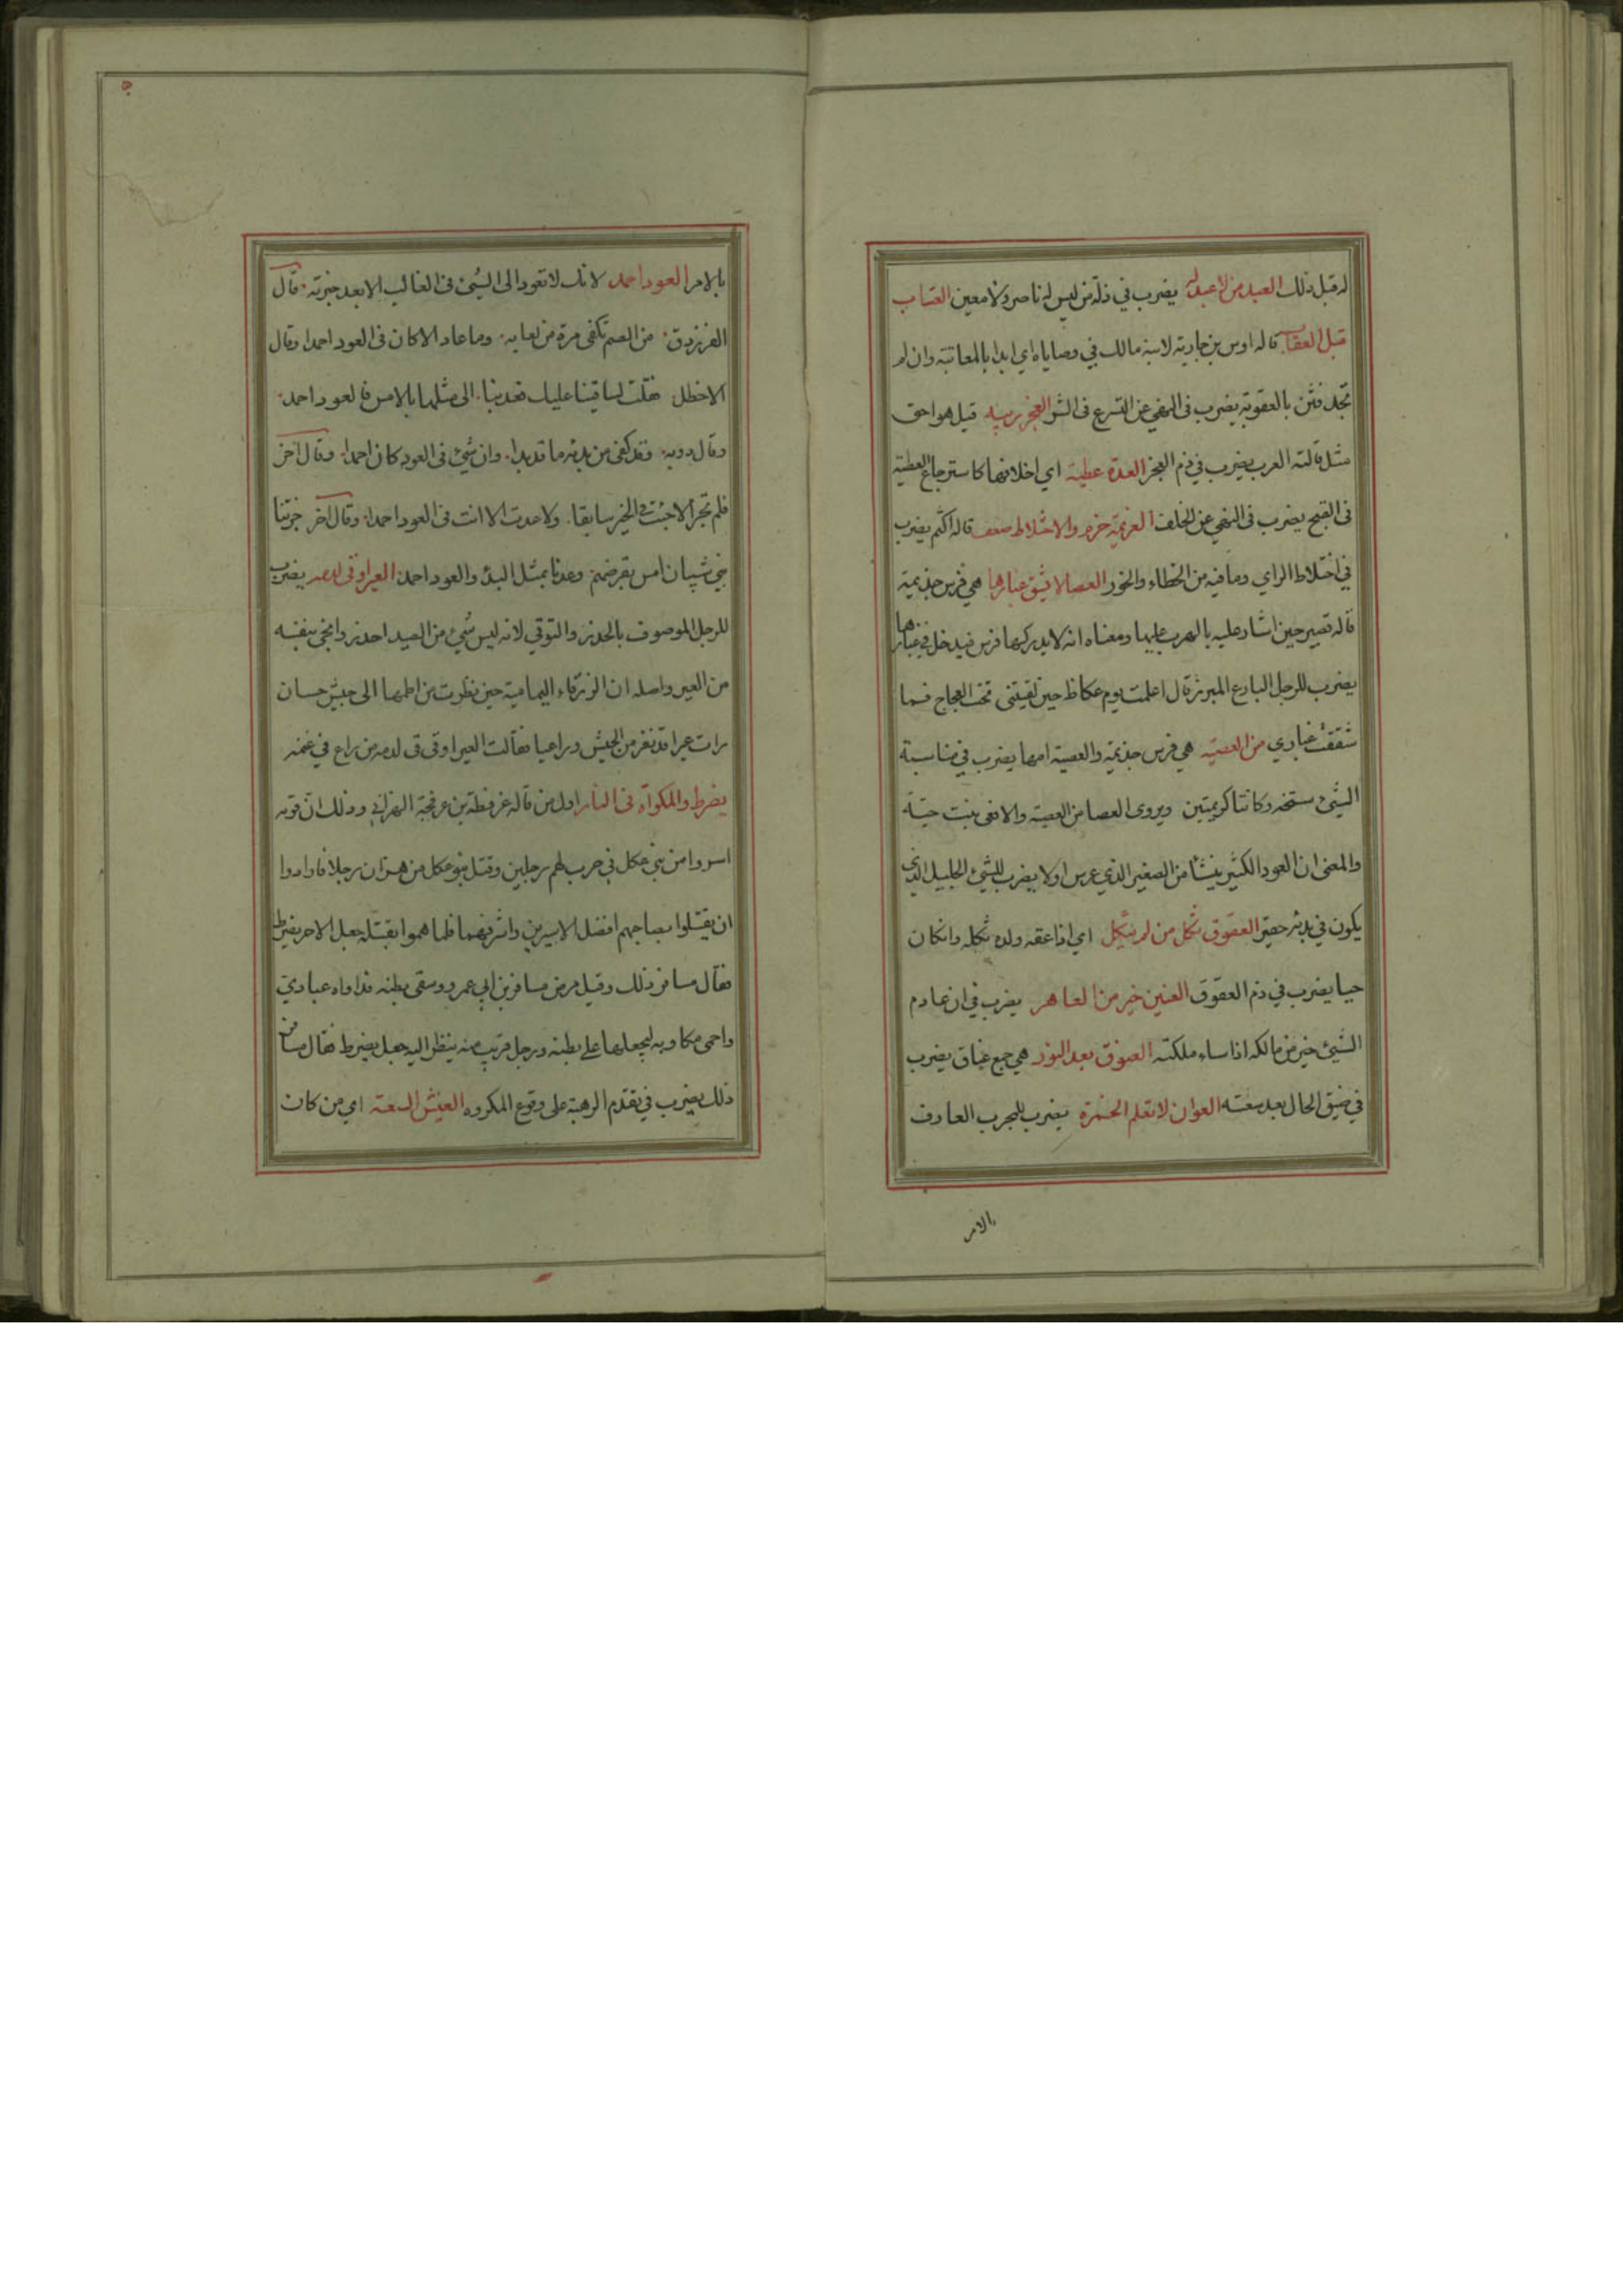 له قبل ذلك العبد من لا عبد له يضرب في ذلة من ليس له ناصر ولا معين العتاب
قبل العقاب قاله اوس بن حارثة لابنه مالك في وصاياه اي ابدا بالمعاتبة وان لم
تجد فثن بالعقوبة يضرب في النهي عن التسرع في الشر العجز ريبه قيل هو احق
مثل قالته العرب يضرب في ذم العجز العدة عطية اي اخلافها كاسترجاع العطية
في القبح يضرب في النهي عن الخلف العزيمة حزم والاختلاط ضعف قاله اكثم يضرب
في اختلاط الراي وما فيه من الخطاء والخور العصا لا يشق غبارها هي فرس جذيمة
قاله قصير حين اشار عليه بالهرب عليها ومعناه انه لا يدركها فرس فيدخل في غبارها
يضرب للرجل البارع المبرز قال اعلمت يوم عكاظ حين لقيتني تحت العجاج فما
شققت غباري من العصية هي فرس جذيمة والعصية امها يضرب في مناسبة
الشيء سنخه وكانتا كريمتين ويروى العصا من العصية والافعى بنت حية
والمعنى ان العود الكثير ينشأ من الصغير الذي غرس اولا يضرب للشيء الجليل الذي
يكون في بدئه حقير العقوق ثكل من لم يثكل اي اذا عقه ولده ثكله وان كان
حيا يضرب في ذم العقوق العنين خير من العاهر يضرب في ان عادم
الشيء خير من مالكه اذا ساء ملكته العنوق بعد النوق هي جمع عناق يضرب
في ضيق الحال بعد سعته العوان لا تعلم الخمرة يضرب للمجرب العارف
بالامر
بالامر العود احمد لانك لا تعود الى الشيء في الغالب الا بعد خبرته قال
الفرزدق من الصم تكفي مرة من لعابه وما عاد الا كان في العود احمدا وقال
الاخطل فقلت لساقينا عليك فعد بنا الى مثلها بالامس فالعود احمد
وقال روبه وقد كفى من بدئه ما قد بدا وان ثنى في العود كان احمدا وقال آخر
فلم تجر الا جئت في الخير سابقا ولا عدت الا انت في العود احمدا وقال آخر جزينا
بني شيبان امس بقرضهم وعدنا بمثل البدء والعود احمد العير اوقى لدمه يضرب
للرجل الموصوف بالحذر والتوقي لانه ليس شيء من الصيد احذر وانجى بنفسه
من العير واصله ان الزرقاء اليمامية حين نظرت من اطمها الى جيش حسان
رات عيرا قد نفر من الجيش وراعيا فقالت العير اوقى لدمه من راع في غنمه
يضرط والمكواة في النار اول من قاله عرفطة بن عرفجة الهزاني وذلك ان قومه
اسروا من بني عكل في حرب لهم رجلين وقتل بنو عكل من هزان رجلا فارادوا
ان يقتلوا بصاحبهم افضل الاسيرين واشرفهما فلما هموا بقتله جعل الاخر يضرط
فقال مسافر ذلك وقيل مرض مسافر بن ابي عمرو وسقى بطنه فداواه عبادي
واحمى مكاويه ليجعلها على بطنه ورجل قريب منه ينظر اليه جعل يضرط فقال مسافر
ذلك يضرب في تقدم الرهبة على وقوع المكروه العيش السعة اي من كان